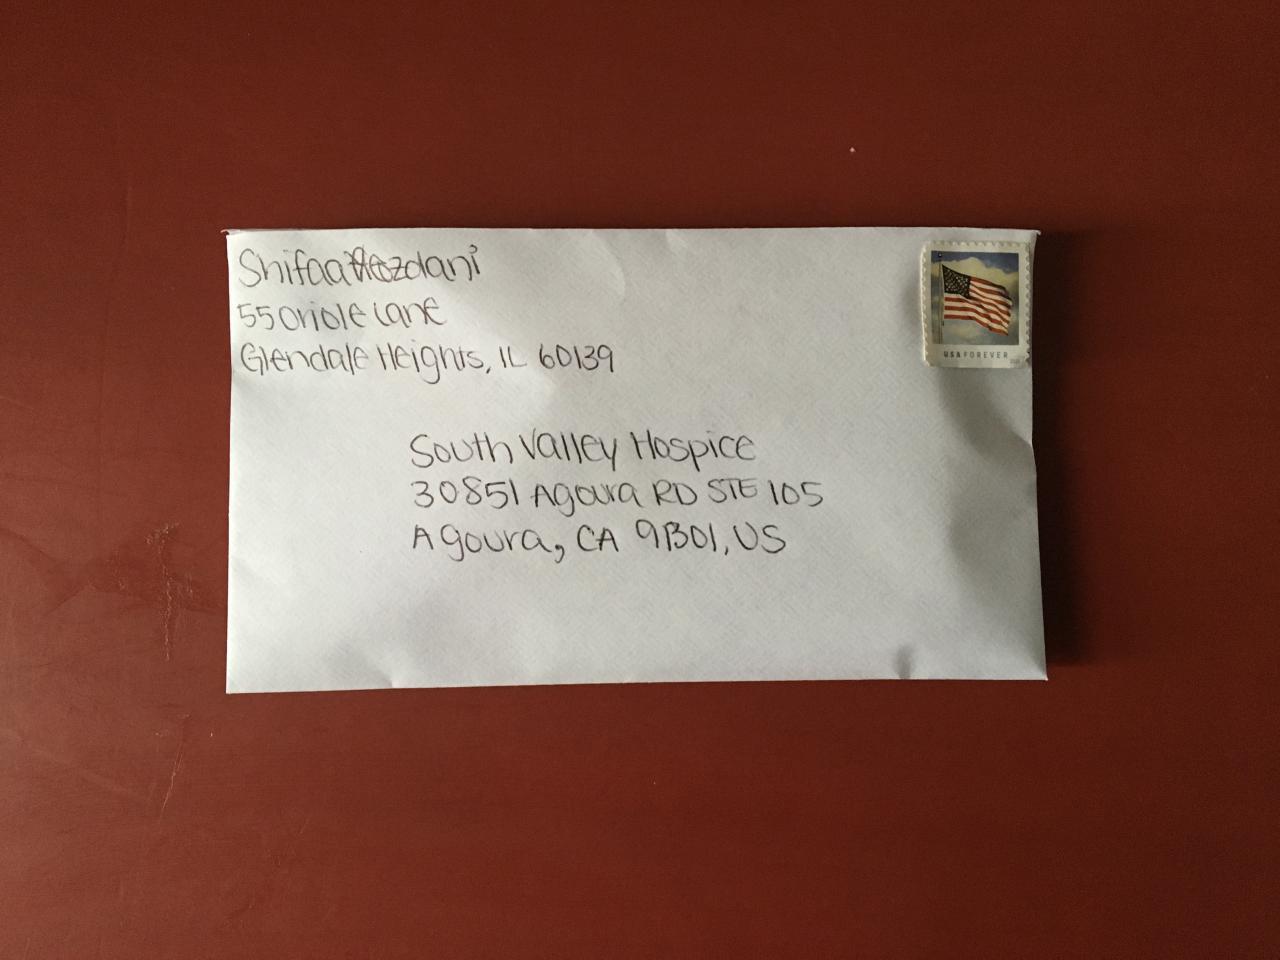 Shifaa
55 Oriole Lane
Glendale Heights, IL 60139
South Valley Hospice
30851 Agoura RD STE 105
Agoura, CA 91301, US
USA FOREVER